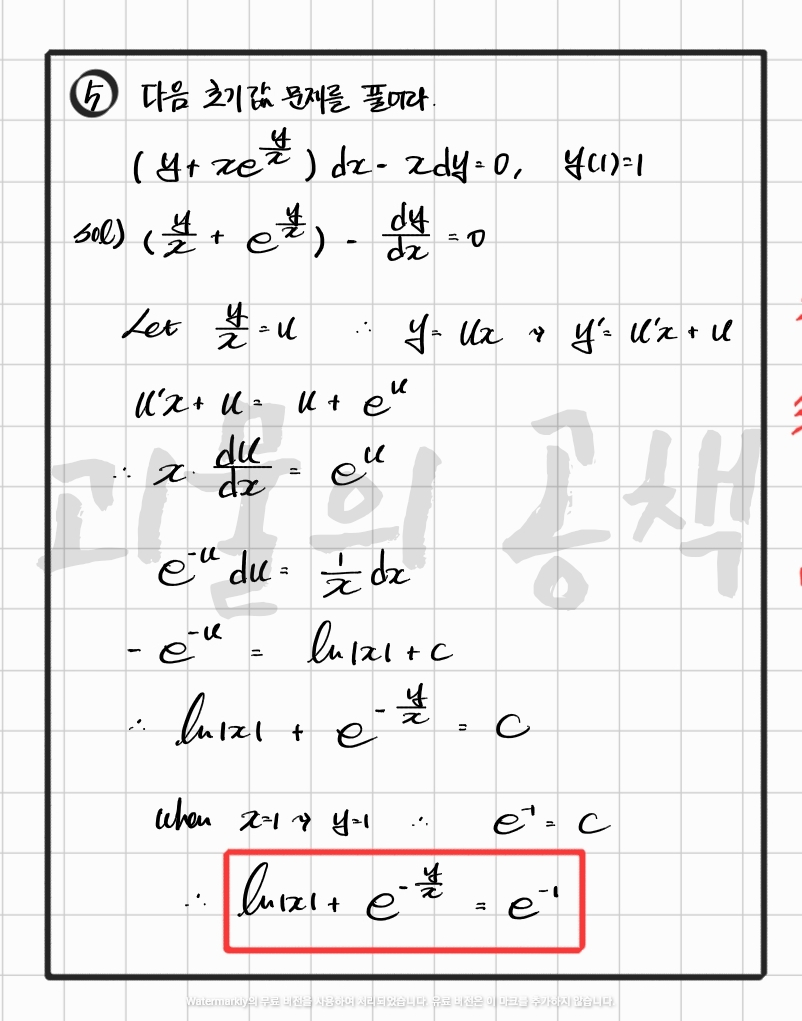 ⑤ 다음 초기값 문제를 풀어라.
(y + xe^{y/x}) dx - xdy = 0, y(1)=1
sol) (y/x + e^{y/x}) - dy/dx = 0
Let y/x = u ∴ y = ux → y' = u'x + u
u'x + u = u + e^u
∴ x · du/dx = e^u
e^{-u} du = 1/x dx
- e^{-u} = ln|x| + c
∴ ln|x| + e^{-y/x} = C
when x=1 → y=1 ∴ e^{-1} = C
∴ ln|x| + e^{-y/x} = e^{-1}
과물의 공책
Watermarkly의 무료 버전을 사용하여 처리되었습니다. 유료 버전은 이 마크를 추가하지 않습니다.